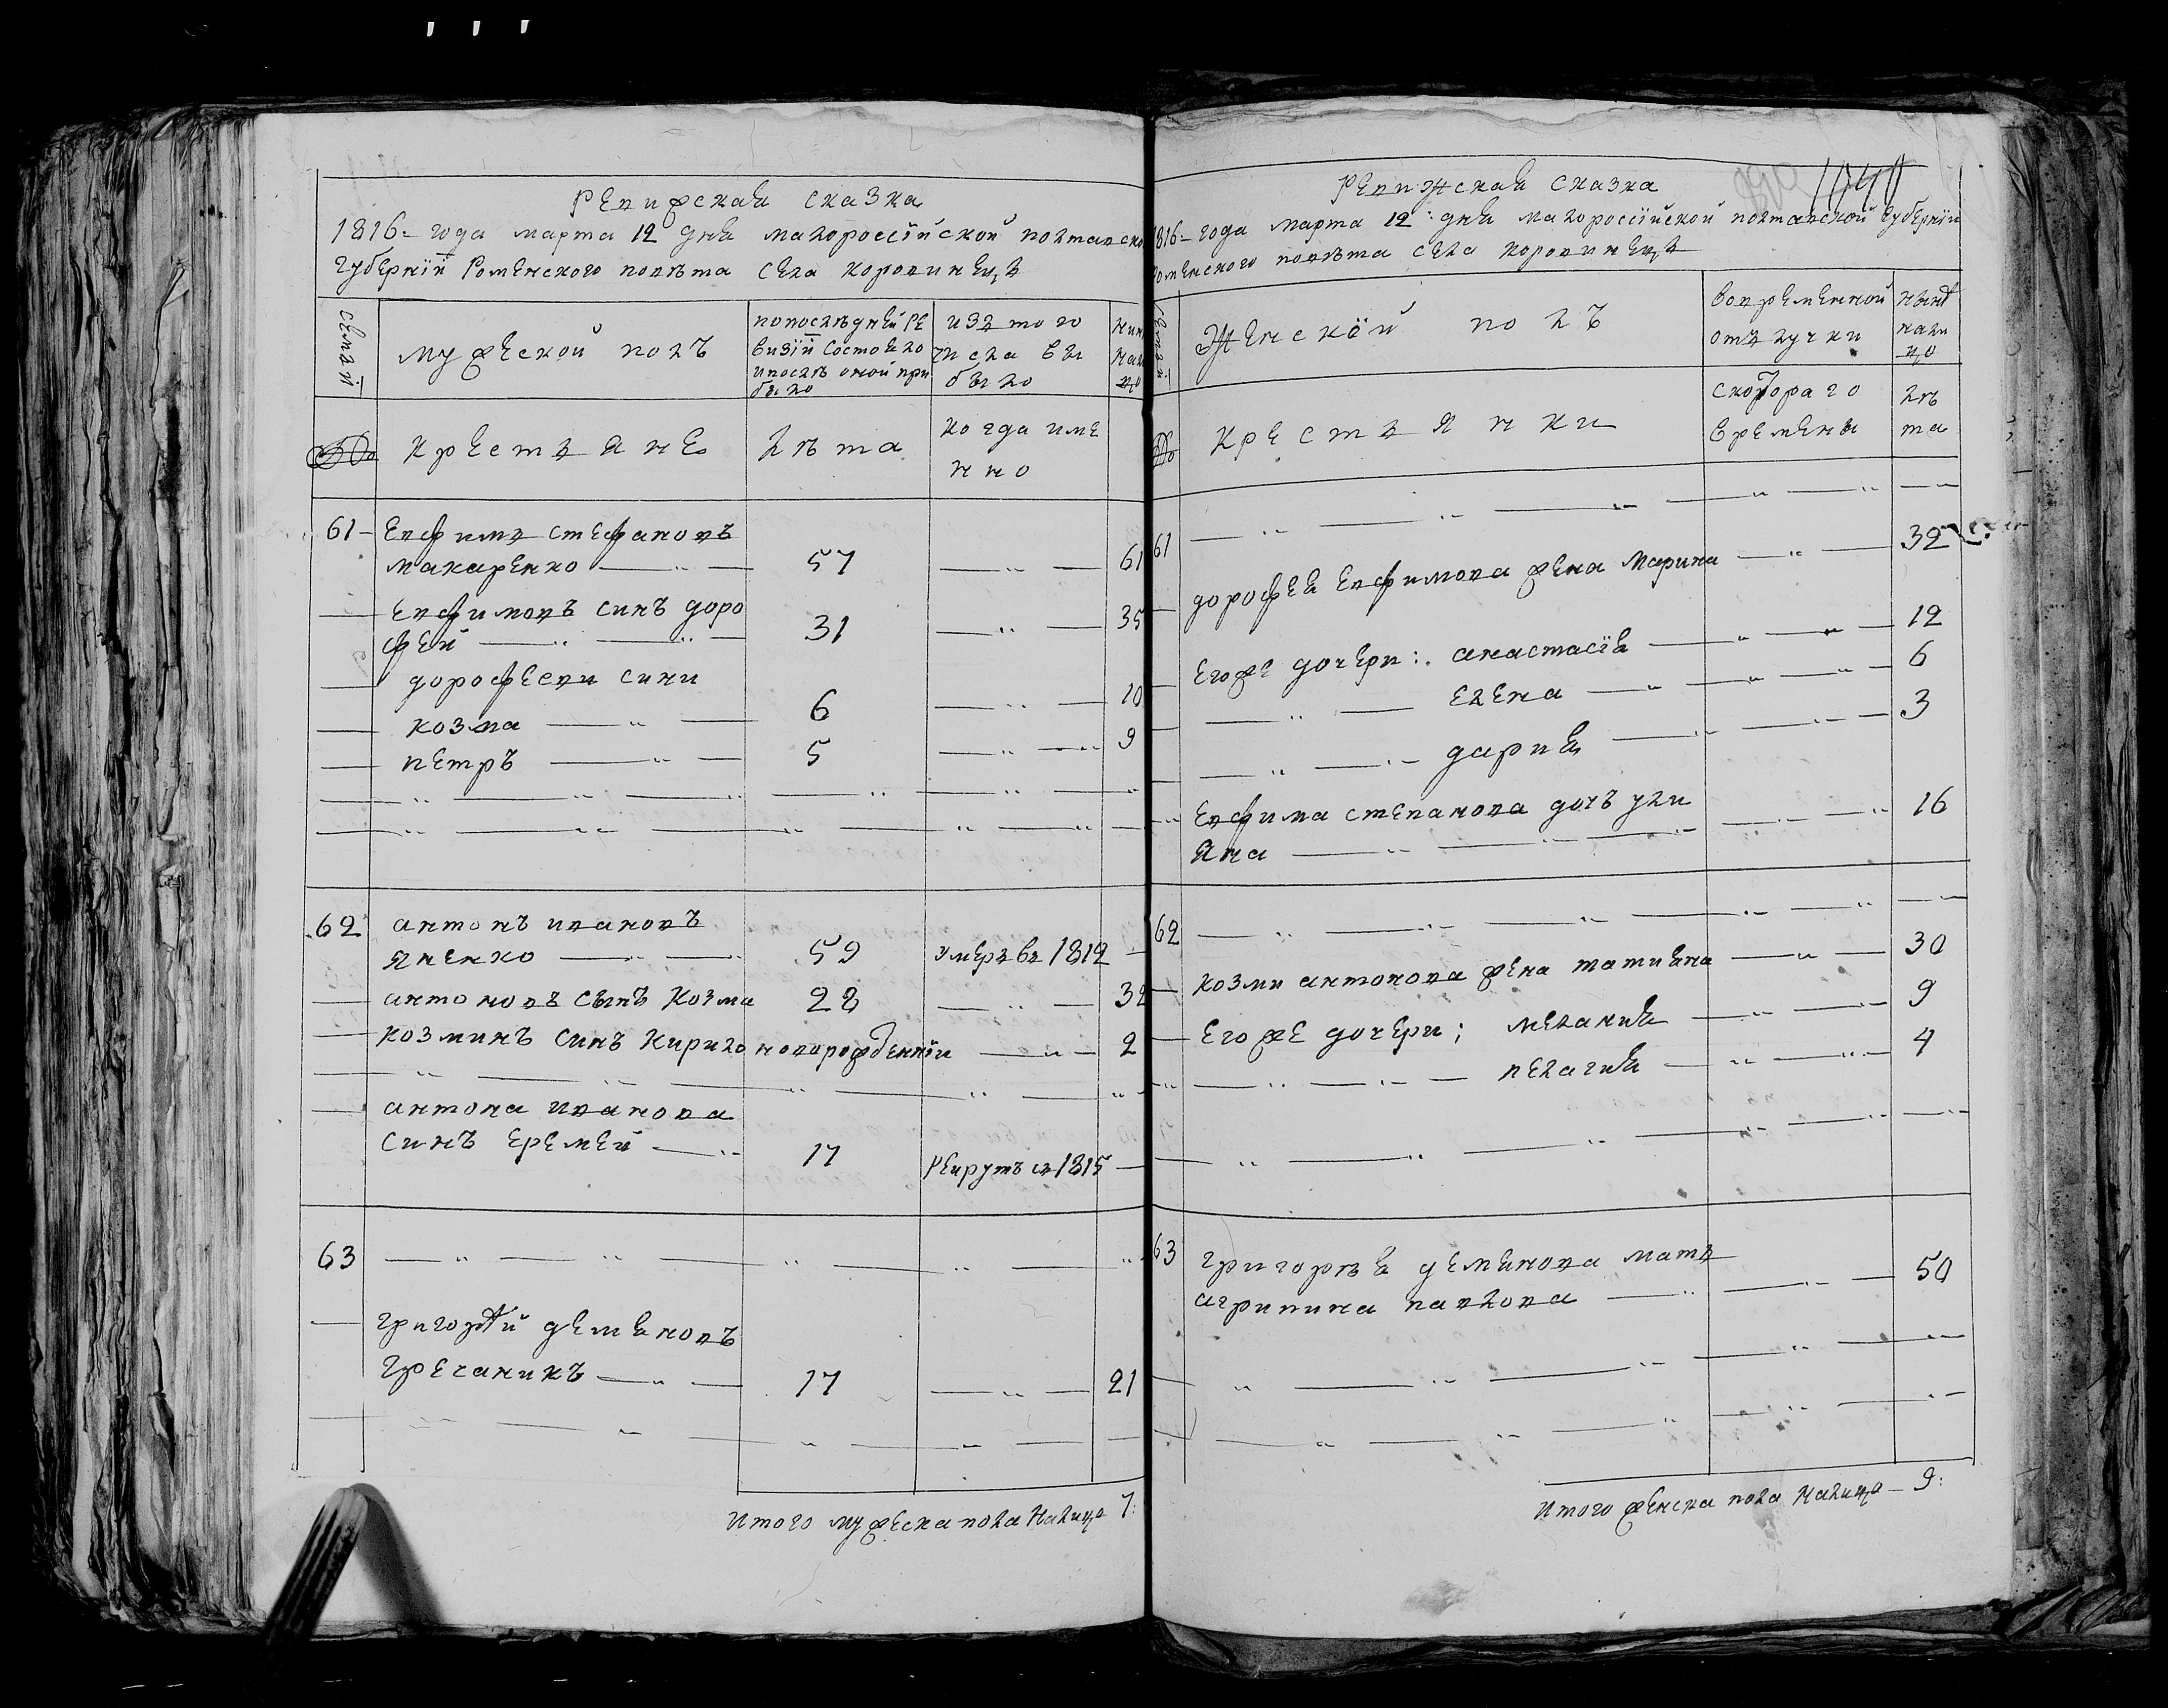 Ревизская сказка
1816 года марта 12 дня малороссійской полтавско
губерніи Роменского повѣта села коровинецъ
семей
мужеской полъ
попослѣдней ре
визіи состояло
ипослѣ оной при
было
изъ того
числа вы
было
нали
цо
№
крестьяне
лѣта
когда име
нно
61 Евфимъ стефановъ
макаренко 57 61
Евфимовъ синъ доро
фей 31 35
дорофееви сини
козма 6 10
петръ 5 9
62 антонъ ивановъ
яненко 59 умеръ въ 1812
антоновъ сынъ козма 28 32
козминъ синъ кирило новорожденніи 2
антона иванова
синъ еремей 17 рекрутъ въ 1815
63
григорѣй демяновъ
гречаникъ 17 21
итого мужеска пола налицо 7:
1040
Ревижская сказка
1816 года марта 12: дня малороссійской полтавской губерніи
роменского повѣта села коровинецъ
Женскій полъ
вовременной
отлучки
нынѣ
нали
цо
№
крестьянки
скоторого
времены
лѣ
та
61
дорофея Евфимова жена марина 32
егоже дочери: анастасія 12
елена 6
дария 3
Евфима степанова дочъ ули
яна 16
62
козми антонова жена татияна 30
егоже дочери; мелания 9
пелагия 4
63 григорѣя демянова мать
агрипина павлова 50
итого женска пола налицо 9: